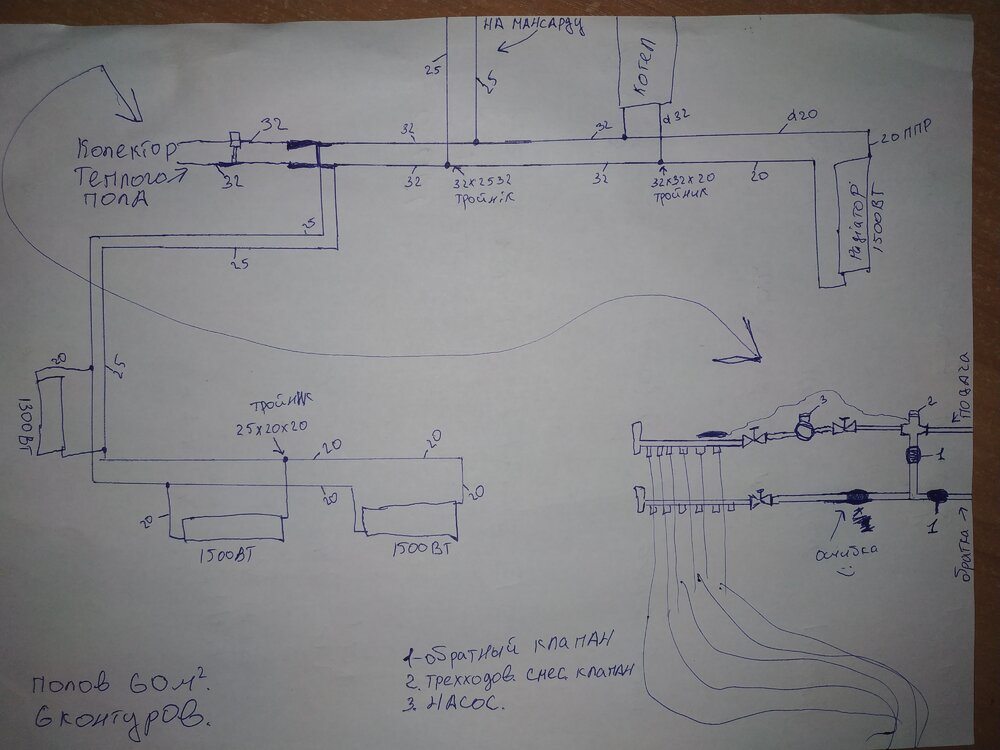 НА МАНСАРДУ
25
25
КОТЕЛ
d32
32
32
32
d20
20 ППР
Колектор
Теплого
ПОЛА
32
32
32х25 32
Тройнік
32
32х32х20
тройник
20
Радіатор
1500ВТ
25
25
20
25
1300ВТ
тройник
25х20х20
20
20
20
20
20
1500ВТ
1500ВТ
3
2
1
1
ПОДАЧА
обратка
ошибка
:(
1-обратный клапан
2. Трехходов. смес. клапан
3. Насос.
полов 60м².
6контуров.